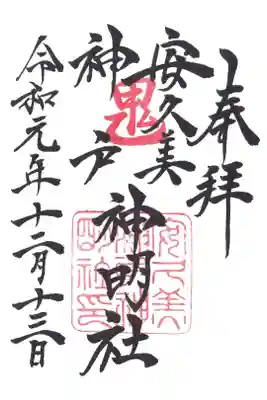 奉拝
安久美
神戸
神明社
令和元年十二月十三日
鬼